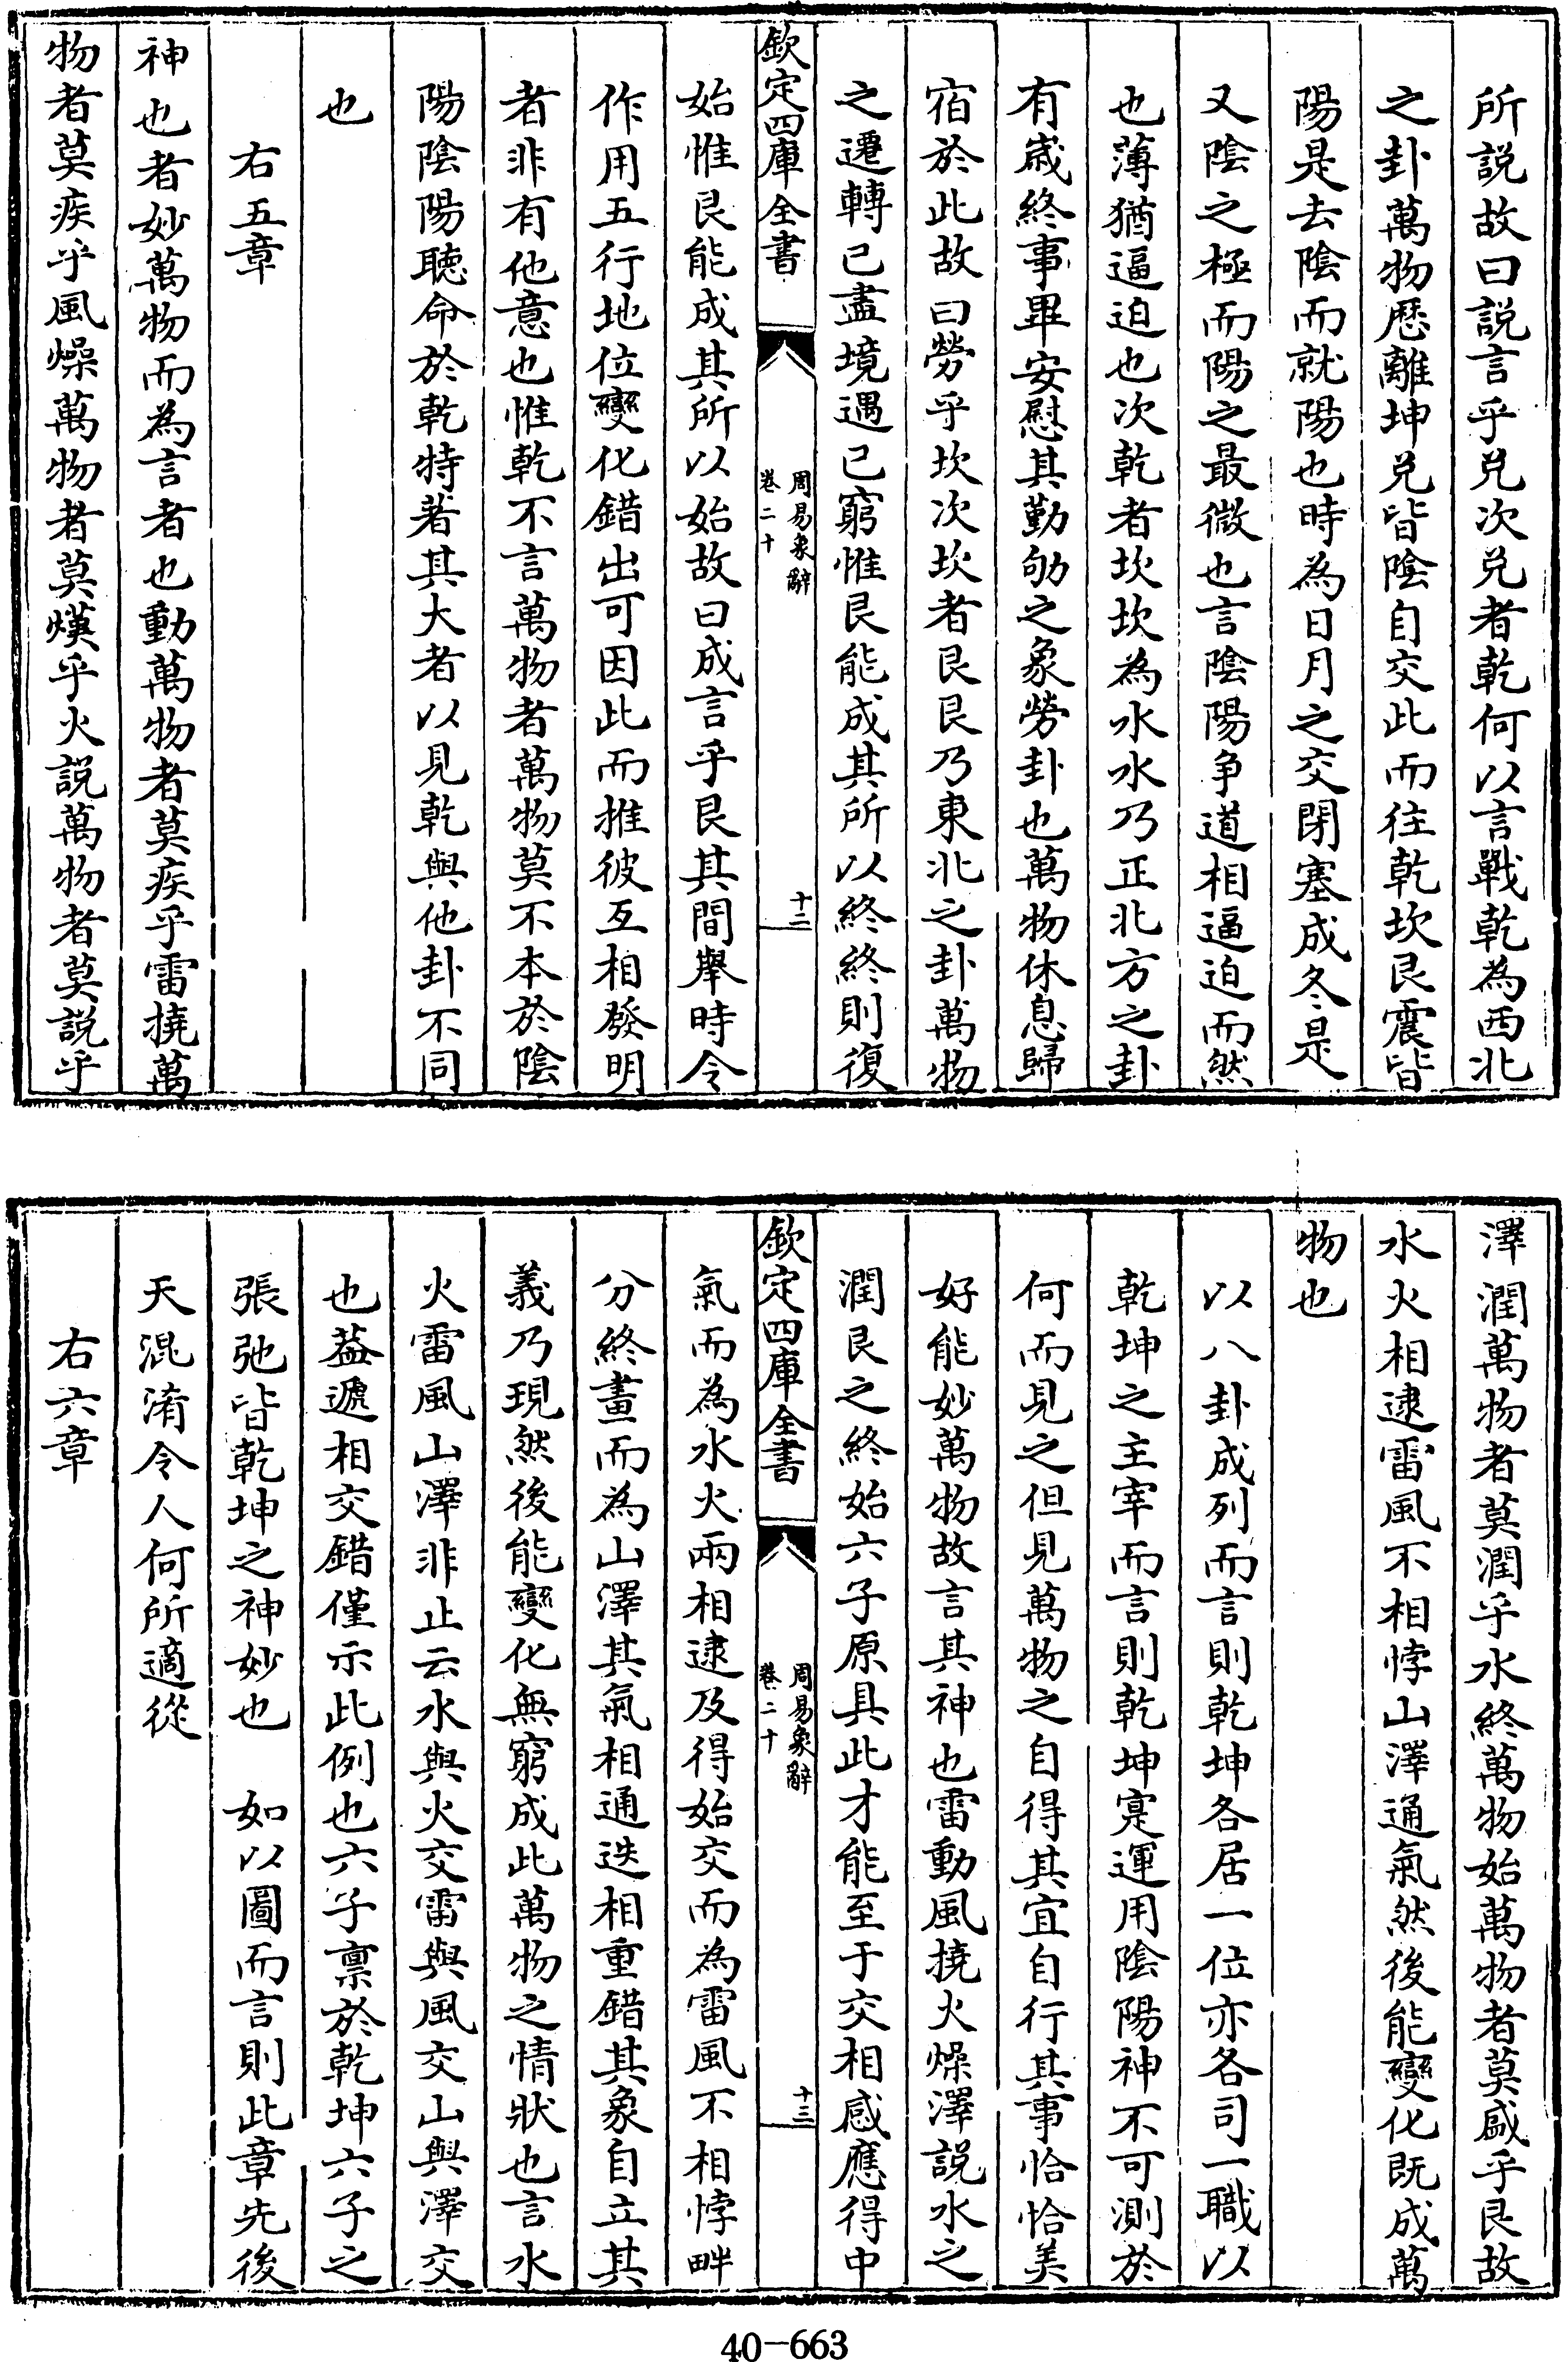 所説故曰説言乎兑次兑者乾何以言戰乾為西北
之卦萬物歴離坤兑皆隂自交此而往乾坎艮震皆
陽是去隂而就陽也時為日月之交閉塞成冬是
又隂之極而陽之最微也言隂陽争道相逼迫而然
也薄猶逼迫也次乾者坎坎為水水乃正北方之卦
有嵗終事畢安慰其勤劬之象勞卦也萬物休息歸
宿於此故曰勞乎坎次坎者艮艮乃東北之卦萬物
之遷轉已盡境遇已窮惟艮能成其所以終終則復
欽定四庫全書
周易象辭
卷二十
十二
始惟艮能成其所以始故曰成言乎艮其間舉時令
作用五行地位變化錯出可因此而推彼互相發明
者非有他意也惟乾不言萬物者萬物莫不本於隂
陽隂陽聽命於乾特著其大者以見乾與他卦不同
也
右五章
神也者妙萬物而為言者也動萬物者莫疾乎雷撓萬
物者莫疾乎風燥萬物者莫熯乎火説萬物者莫説乎
澤潤萬物者莫潤乎水終萬物始萬物者莫盛乎艮故
水火相逮雷風不相悖山澤通氣然後能變化既成萬
物也
以八卦成列而言則乾坤各居一位亦各司一職以
乾坤之主宰而言則乾坤寔運用隂陽神不可測於
何而見之但見萬物之自得其宜自行其事恰恰美
好能妙萬物故言其神也雷動風撓火燥澤説水之
潤艮之終始六子原具此才能至于交相感應得中
欽定四庫全書
周易象辭
卷二十
十三
氣而為水火兩相逮及得始交而為雷風不相悖畔
分終畫而為山澤其氣相通迭相重錯其象自立其
義乃現然後能變化無窮成此萬物之情狀也言水
火雷風山澤非止云水與火交雷與風交山與澤交
也葢遞相交錯僅示此例也六子禀於乾坤六子之
張弛皆乾坤之神妙也　如以圖而言則此章先後
天混淆令人何所適從
右六章
40-663